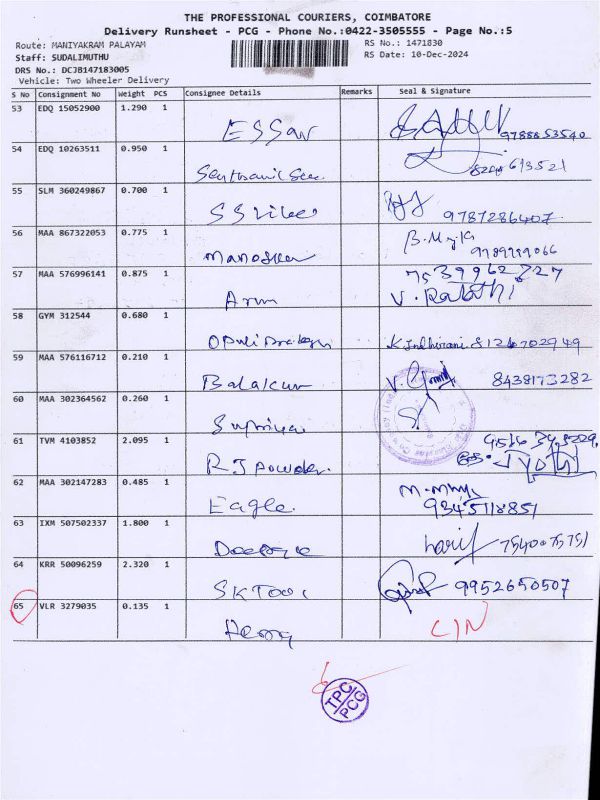 THE PROFESSIONAL COURIERS, COIMBATORE
Delivery Runsheet - PCG - Phone No.:0422-3505555 - Page No.:5
Route: MANIYAKRAM PALAYAM RS No.: 1471830
Staff: SUDALIMUTHU RS Date: 10-Dec-2024
DRS No.: DCJB147183005
Vehicle: Two Wheeler Delivery
S No Consignment No Weight PCS Consignee Details Remarks Seal & Signature
53 EDQ 15052900 1.290 1
ESSar 9788853540
54 EDQ 10263511 0.950 1
55 SLM 360249867 0.700 1
9787286407
56 MAA 867322053 0.775 1
Manoskar
57 MAA 576996141 0.875 1 7539962727
Arun V. Rakothi
58 GYM 312544 0.680 1
8124702949
59 MAA 576116712 0.210 1
Balakur 8438173282
60 MAA 302364562 0.260 1
Supriya
61 TVM 4103852 2.095 1
RJ powder. Jyothi
62 MAA 302147283 0.485 1
Eagle 9345118851
63 IXM 507502337 1.800 1
harif 7540075751
64 KRR 50096259 2.320 1
SKTool 9952650507
65 VLR 3279035 0.135 1
CIN
TPC
PCG